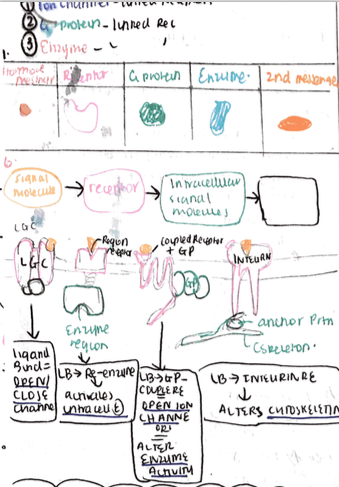 ① Ion channel - linked
② G protein - linked Rec
③ Enzyme - "
1.
Receptor G protein Enzyme. 2nd messenger
6.
Signal molecule → receptor → Intracellular signal molecules →
LGC
LGC
Region receptor
Coupled Receptor + GP
GP
INTEGRN
Enzyme region
anchor Prtn
Cskeleton.
Ligand Bind = OPEN/ CLOSE Channel
LB → Re-enzyme
activates
intracell E
LB → GP-
COUPLERE
OPEN ION
CHANNE
OR:
ALTER
ENZYME
Activity
LB → INTEGRINRE
→ ALTERS CYTOSKELETN